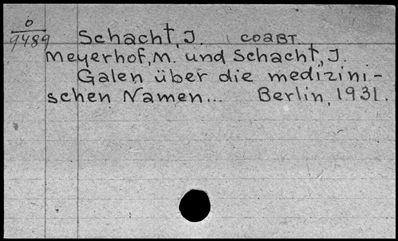 o
9489
Schacht, J. соавт.
Meyerhof, M. und Schacht, J.
Galen über die medizini-
schen Namen... Berlin, 1931.